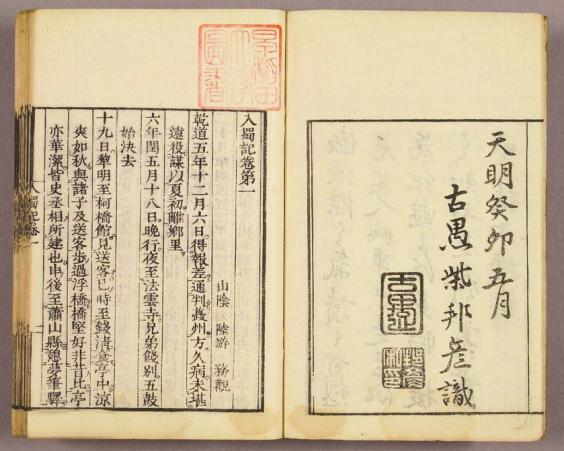 天明癸卯五月
古愚柴邦彦識
入蜀記卷第一
山陰 陸游 務觀
乾道五年十二月六日得報差通判夔州方久病未堪
遠役謀以夏初離鄉里
六年閏五月十八日晚行夜至法雲寺兄弟餞別五鼓
始決去
十九日黎明至柯橋館見送客巳時至錢清食亭中涼
爽如秋與諸子及送客步過浮橋橋堅好非昔比亭
亦華潔皆史丞相所建也申後至蕭山縣憩夢筆驛
入蜀記卷一